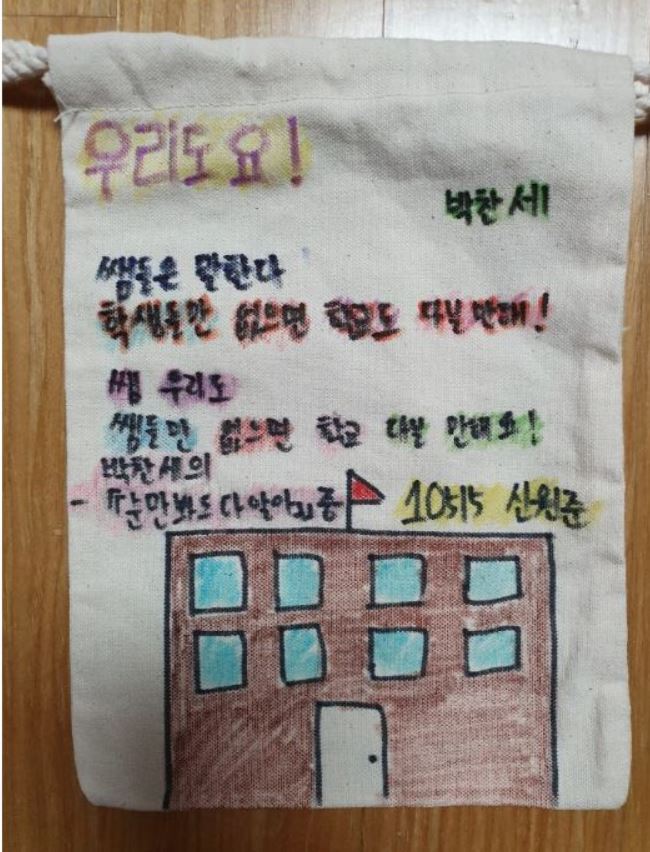 우리도요!
박찬세
쌤들은 말한다
학생들만 없으면 학교도 다닐만해!
쌤 우리도
쌤들만 없으면 학교 다닐 만해요!
박찬세의
- 눈만봐도다알아 중
10515 신원준